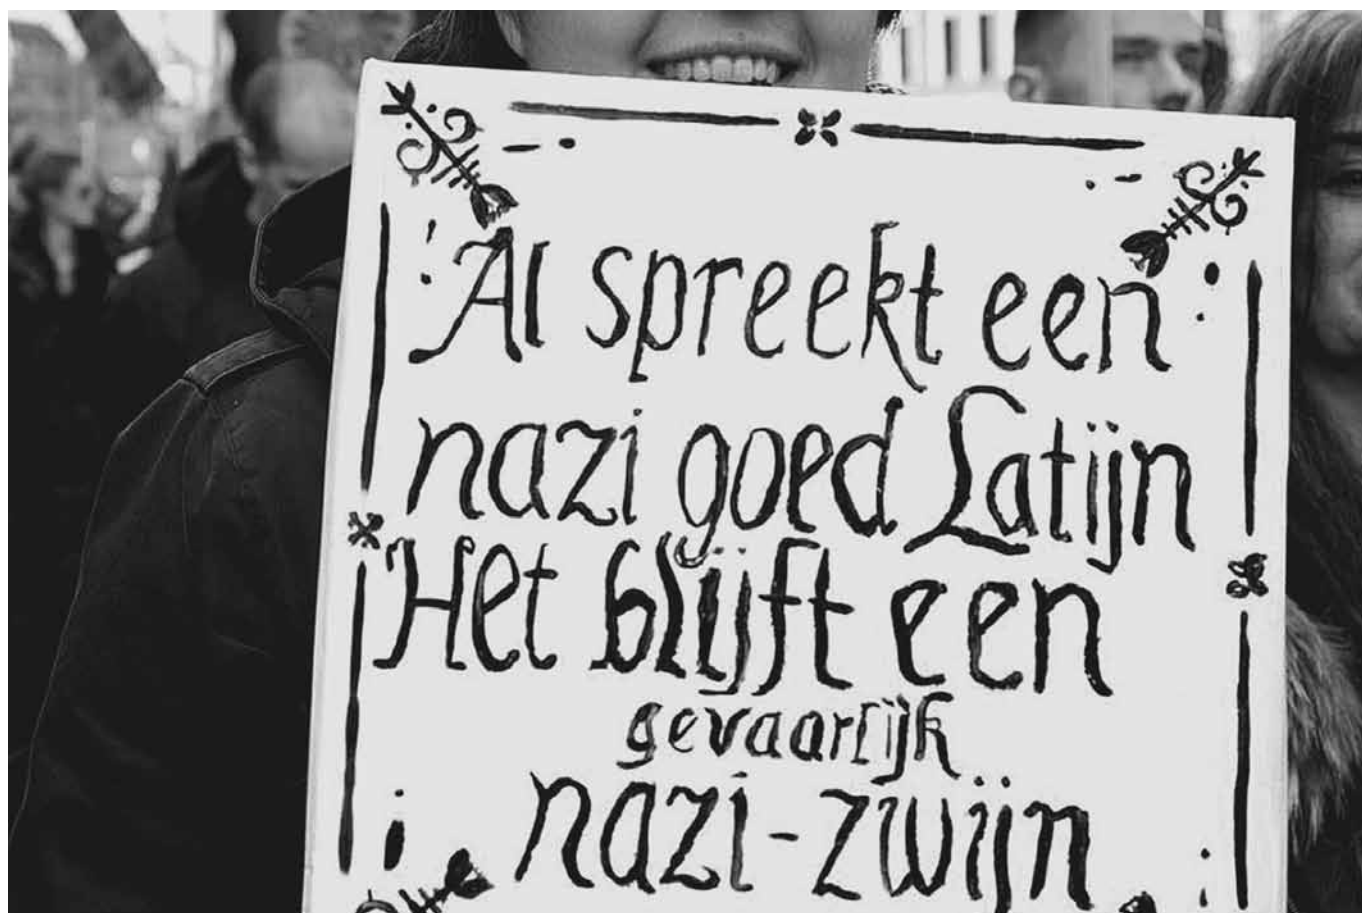 'Al spreekt een
nazi goed Latijn
Het blijft een
gevaarlijk
nazi-zwijn